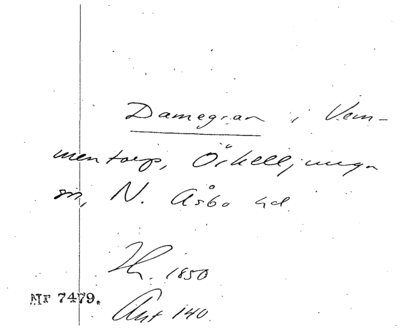 Damegran i Vem-
mentorp, Örkelljunga
sn, N. Åsbo hd.
Th. 1850
Nr 7479.
Ant 140.